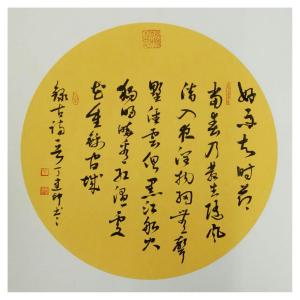 好雨知时节
当春乃发生随风
潜入夜润物细无声
野径云俱黑江船火
独明晓看红湿处
花重锦官城
录古诗